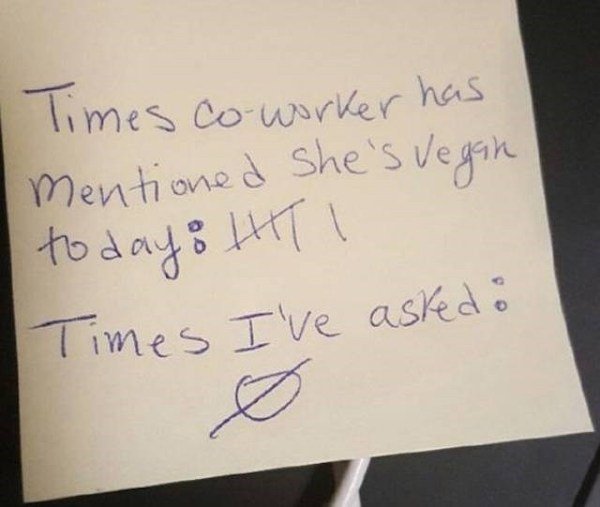 Times co-worker has
mentioned she's vegan
today: 卌 I
Times I've asked:
Ø